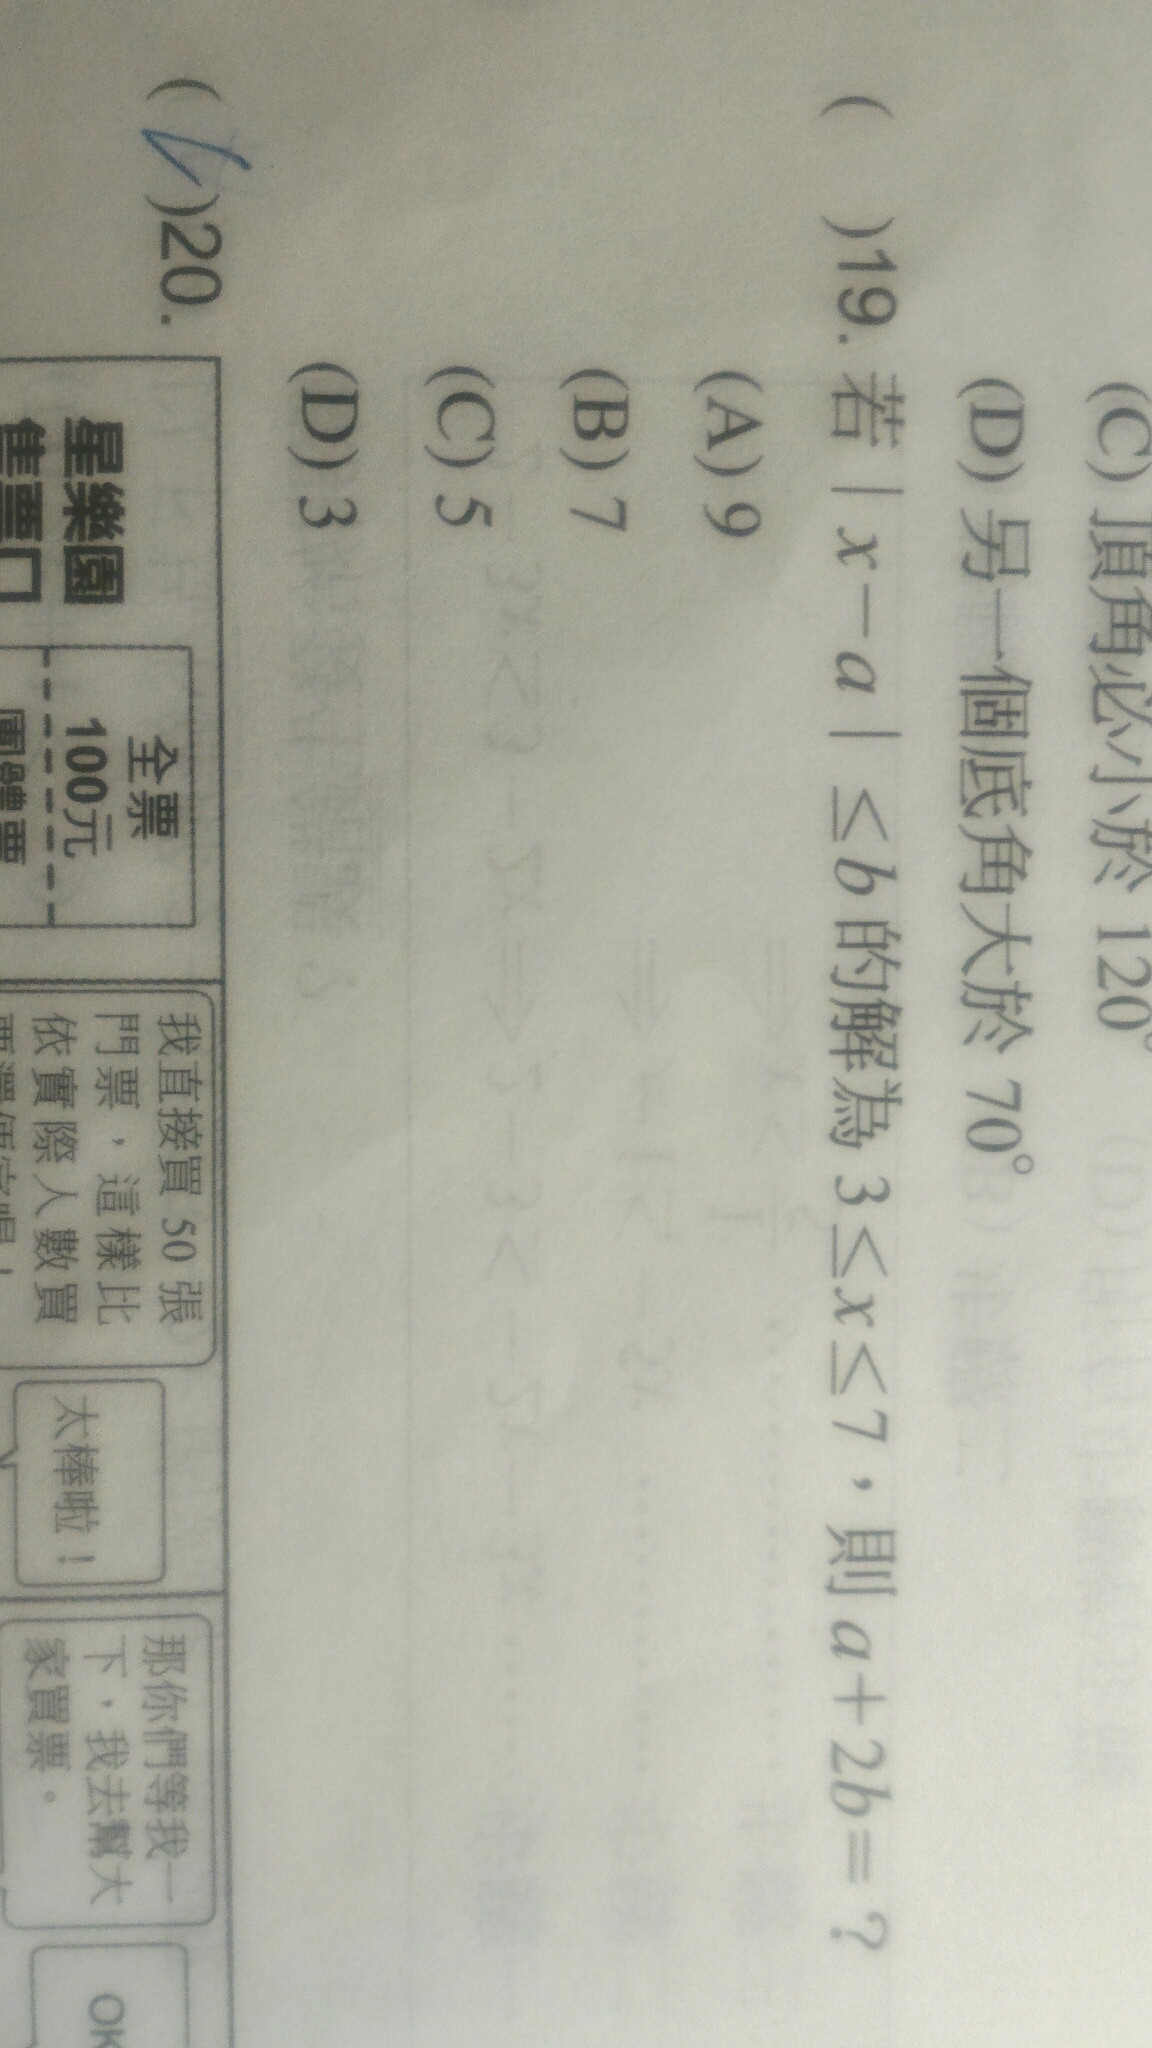 (C) 頂角必小於 120°
(D) 另一個底角大於 70°
( )19. 若 | x－a | ≤ b 的解為 3 ≤ x ≤ 7，則 a＋2b＝？
(A) 9
(B) 7
(C) 5
(D) 3
( )20.
星樂園
售票口
全票
100元
團體票
我直接買 50 張
門票，這樣比
依實際人數買
票還便宜喔！
太棒啦！
那你們等我一
下，我去幫大
家買票。
OK